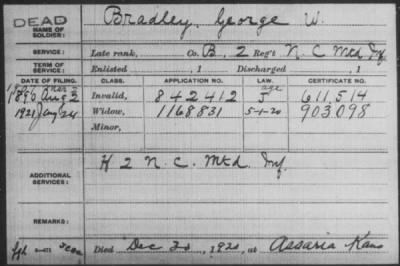 DEAD Bradley, George W.
NAME OF SOLDIER:
SERVICE: Late rank, Co. B, 2 Reg't N.C. Mtd Inf
TERM OF SERVICE: Enlisted , 1 Discharged , 1
DATE OF FILING. CLASS. APPLICATION NO. LAW. CERTIFICATE NO.
1896 Aug 3 Invalid, 842412 J age 611,514
1921 Jany 24 Widow, 1168831 5-1-20 903,098
Minor,
ADDITIONAL SERVICES: H 2 N.C. Mtd. Inf.
REMARKS:
Died Dec 30, 1920, at Assaria Kans